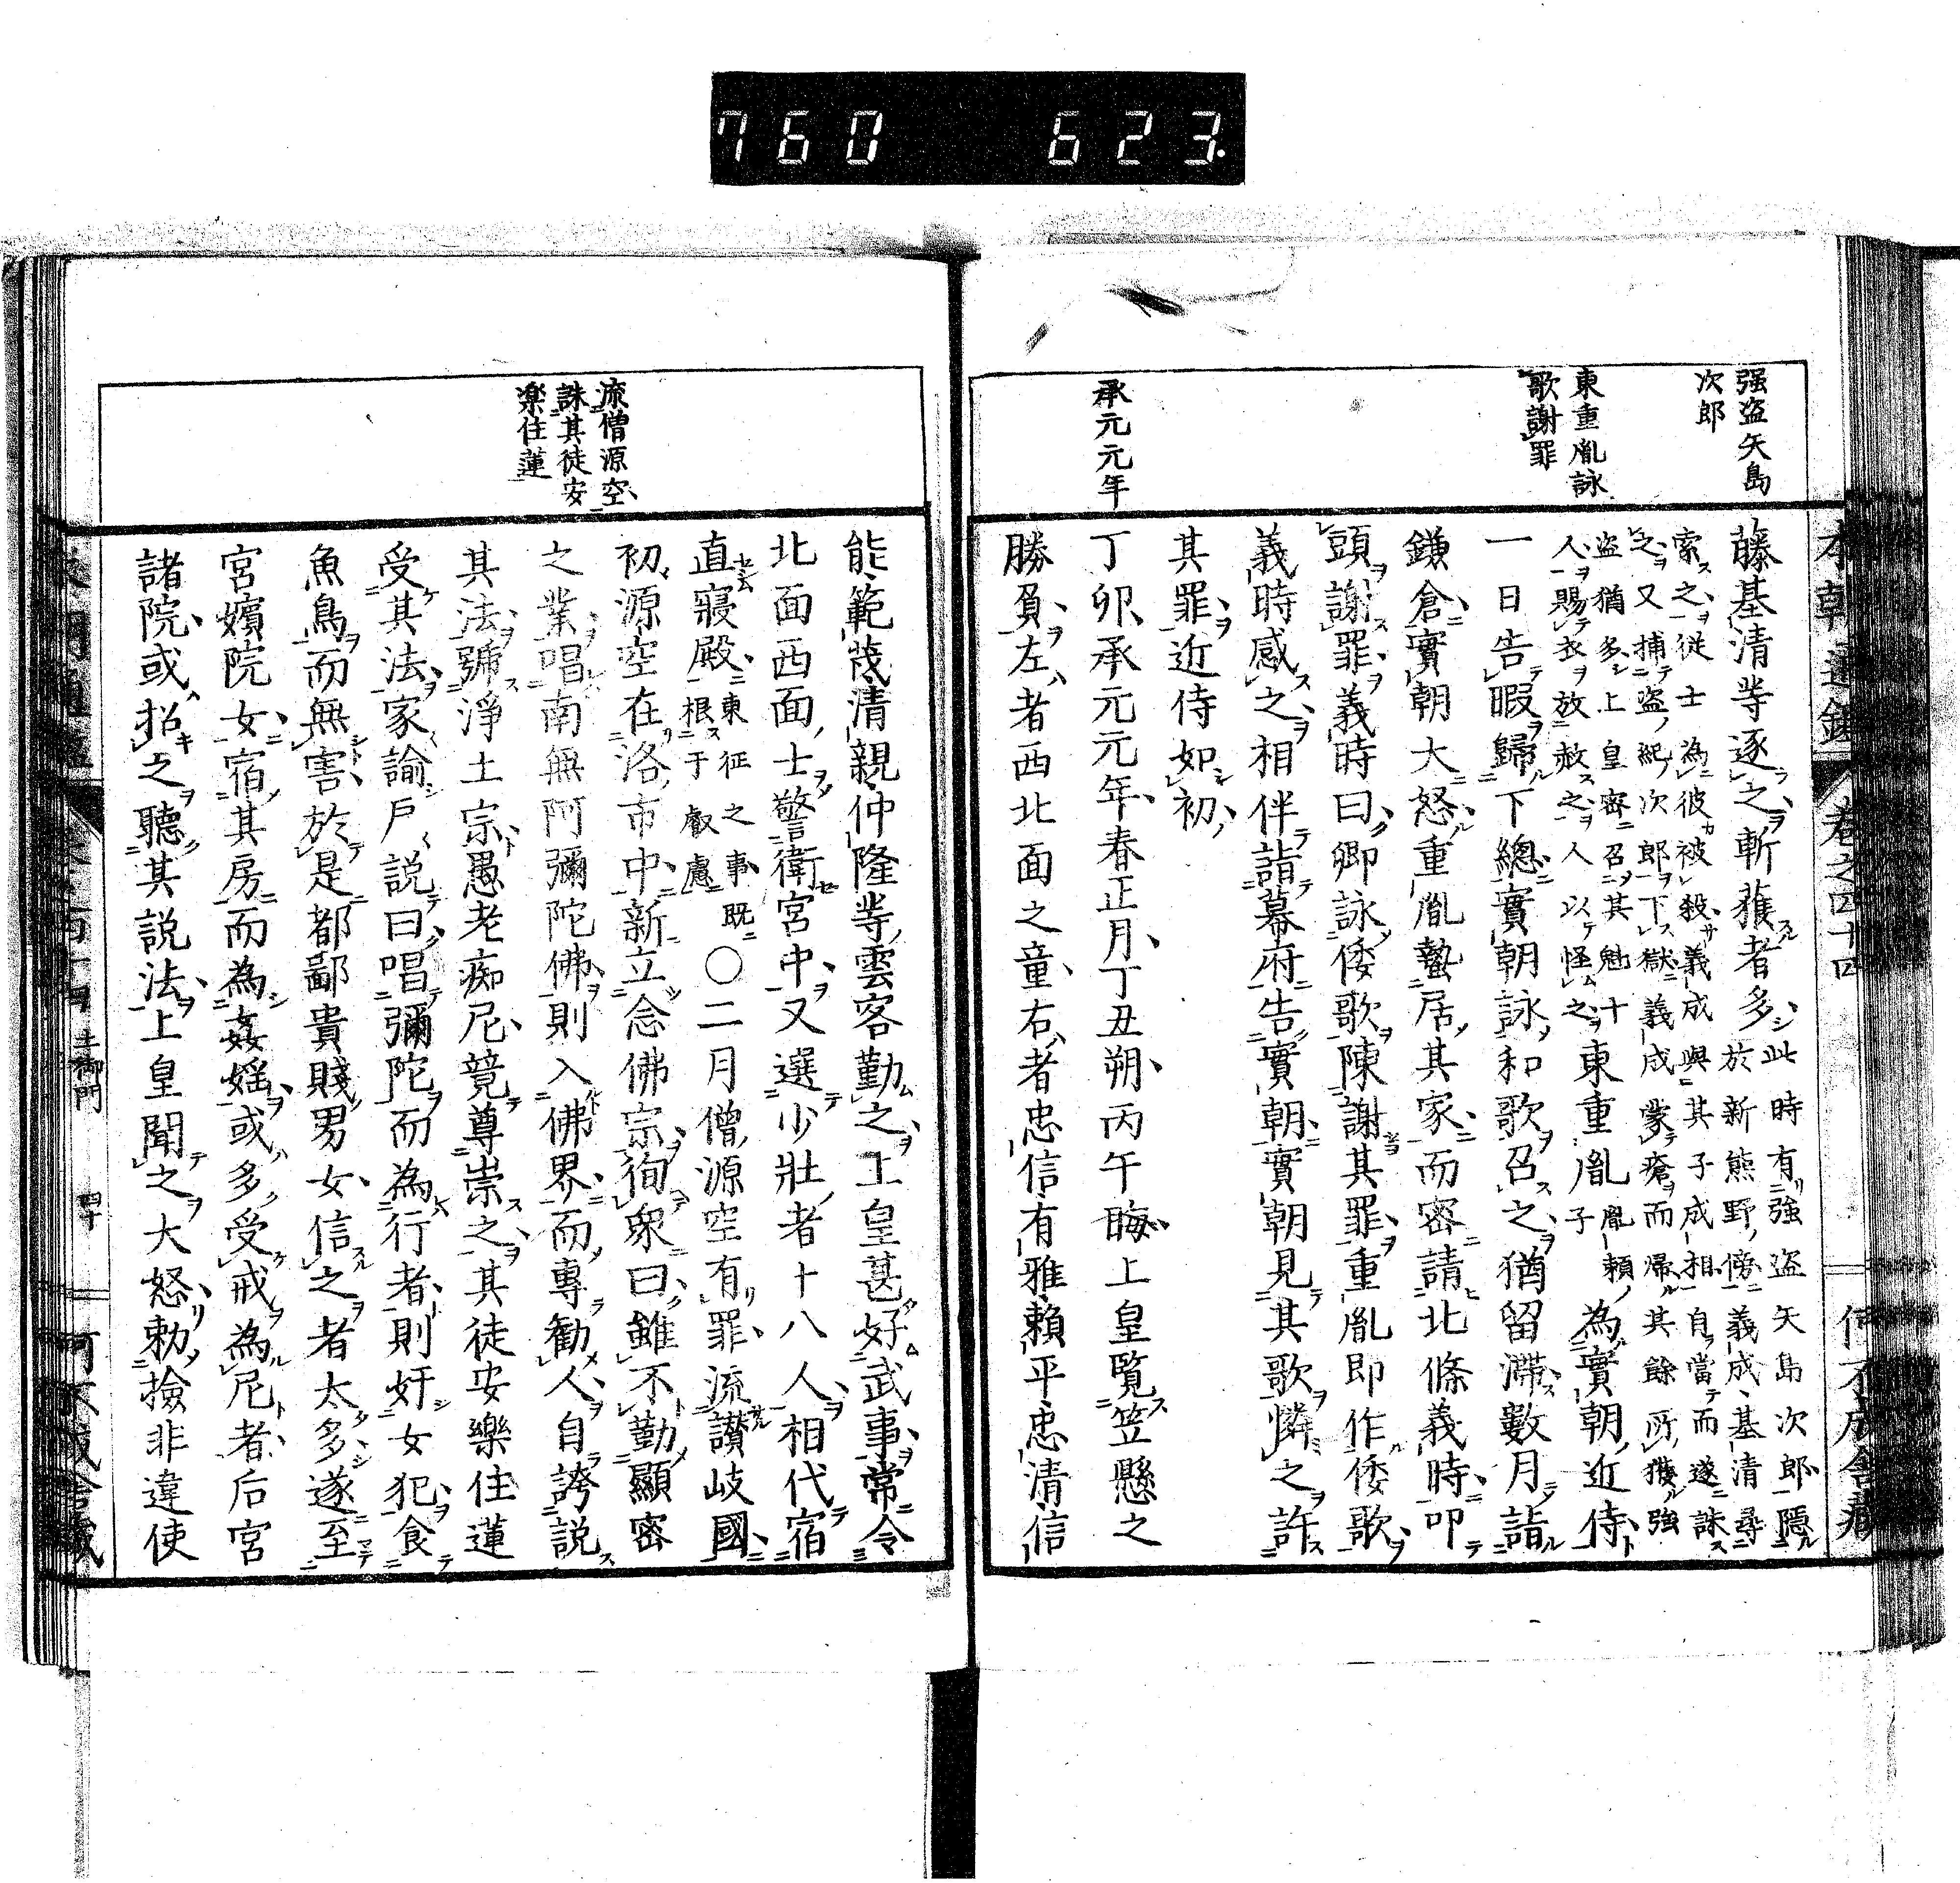 760 623.
强盗矢島
次郎
東重胤詠
歌謝罪
承元元年
本朝通鑑 卷之四十四
藤基清等逐之斬獲者多此時有強盗矢島次郎隱
於新熊野傍義成基清尋
索之從士為彼被殺義成與其子成相自當而遂誅
之又捕盗紀次郎下獄義成蒙瘡而歸其餘所獲強
盗猶多上皇密召其魁十
人賜衣放赦之人以怪之東重胤胤頼子為實朝近侍
一日告暇歸下總實朝詠和歌召之猶留滯數月詣
鎌倉實朝大怒重胤蟄居其家而密請北條義時叩
頭謝罪義時曰卿詠倭歌陳謝其罪重胤即作倭歌
義時感之相伴詣幕府告實朝實朝見其歌憐之許
其罪近侍如初
丁卯承元元年春正月丁丑朔丙午晦上皇覧笠懸之
勝負左者西北面之童右者忠信有雅頼平忠清信
流僧源空
誅其徒安
楽住蓮
能範茂清親仲隆等雲客勤之上皇甚好武事常令
北面西面士警衛宮中又選少壯者十八人相代宿
直寢殿東征之事既
根于叡慮〇二月僧源空有罪流讃岐國
初源空在洛市中新立念佛宗徇衆曰雖不勤顯密
之業唱南無阿彌陀佛則入佛界而專勸人自誇説
其法號淨土宗愚老痴尼競尊崇之其徒安樂住蓮
受其法家諭戸説曰唱彌陀而為行者則奸女犯食
魚鳥而無害於是都鄙貴賤男女信之者太多遂至
宮嬪院女宿其房而為姦婬或多受戒為尼者后宮
諸院或招之聽其説法上皇聞之大怒勅撿非違使
土御門
四十